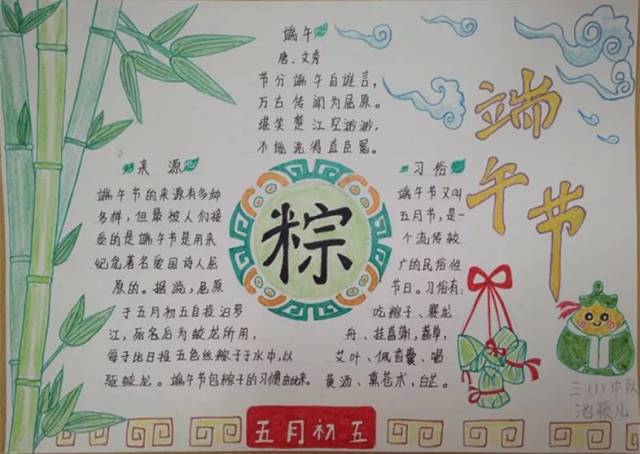 端午
唐、文秀
节分端午自谁言,
万古传闻为屈原。
堪笑楚江空渺渺,
不能洗得直臣冤。
端午节
来源
端午节的来源有多种
多样,但最被人们接
受的是端午节是用来
纪念著名爱国诗人屈
原的。据说,屈原
于五月初五自投汨罗
江,死名后为蛟龙所用,
每于比日投五色丝粽子于水中,以
驱蛟龙。端午节包粽子的习惯由此来。
粽
习俗
端午节又叫
五月节,是一
个流传较
广的民俗性
节日。习俗有:
吃粽子、赛龙
舟、挂菖蒲、蒿草,
艾叶、佩香囊、唱
黄酒、熏苍术、白芷。
三(1)中队
池颖儿
五月初五